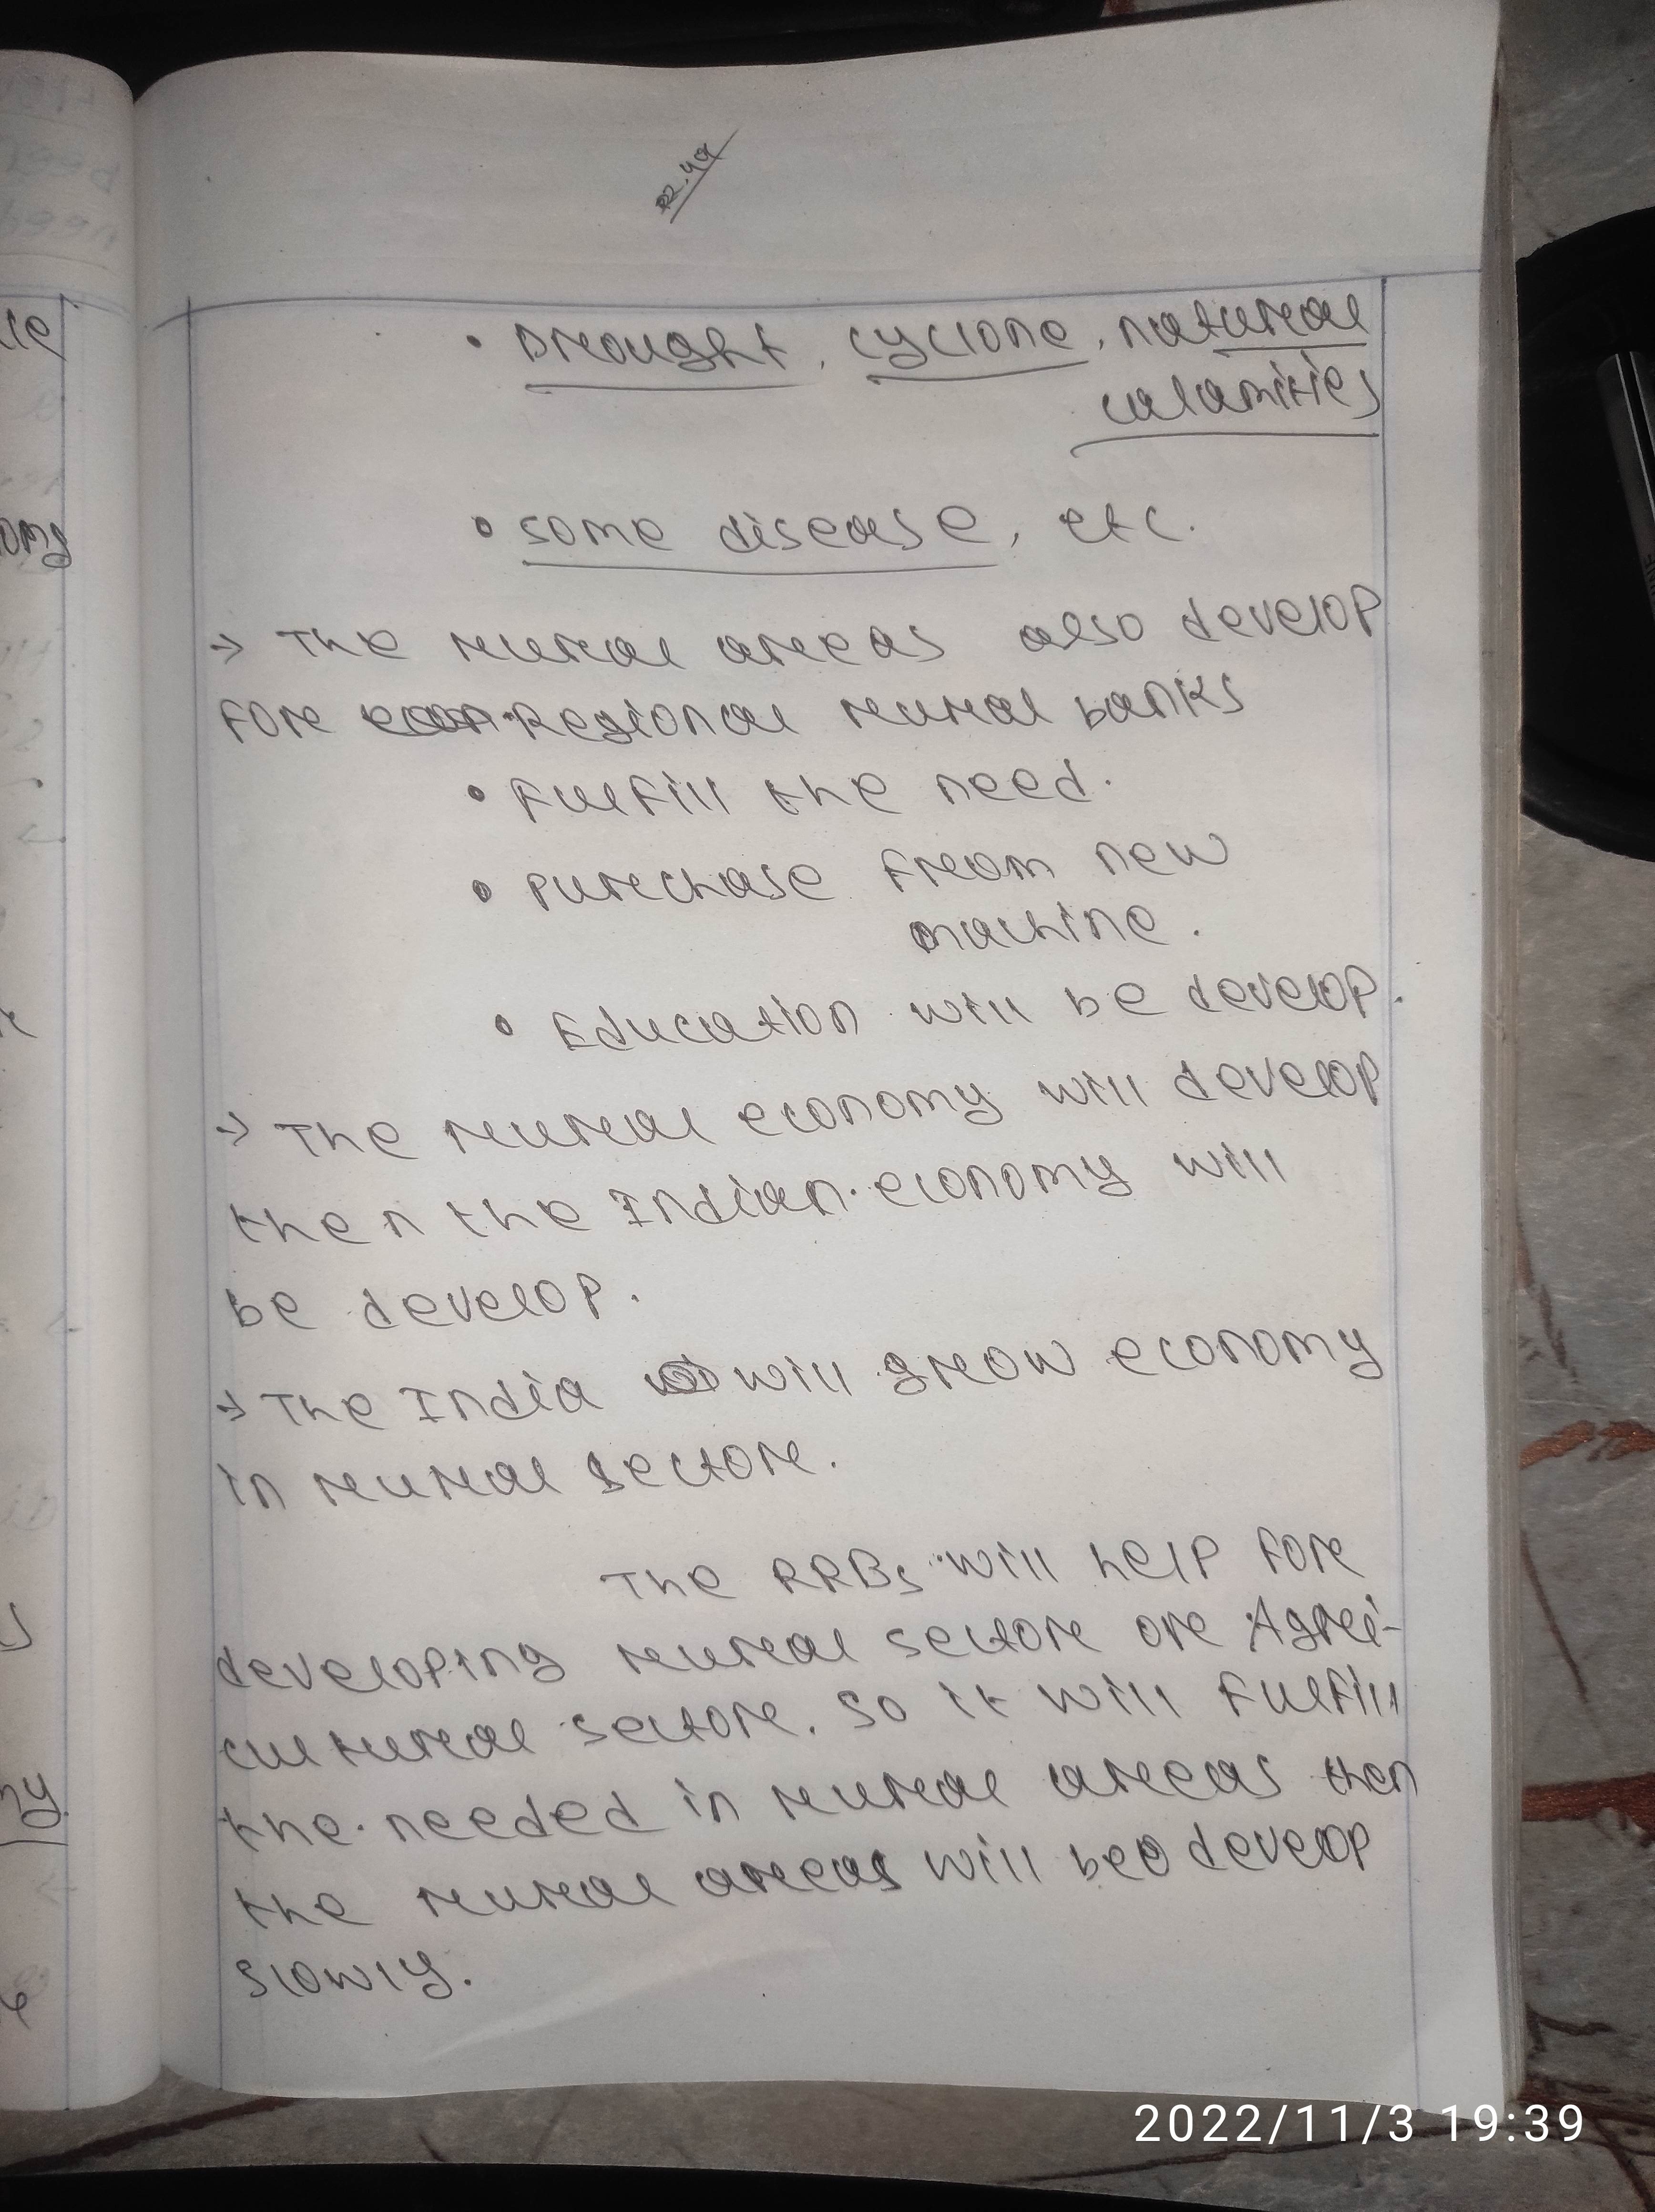 • Drought, cyclone, natural
calamities
• some disease, etc.
→ The rural areas also develop
for Regional rural banks
• Fulfill the need.
• Purchase from new
machine.
• Education will be develop.
→ The rural economy will develop
then the Indian economy will
be develop.
→ The India will grow economy
in rural sector.
The RRBs will help for
developing rural sector or Agri-
cultural sector. So it will fulfill
the needed in rural areas then
the rural areas will be develop
slowly.
2022/11/3 19:39